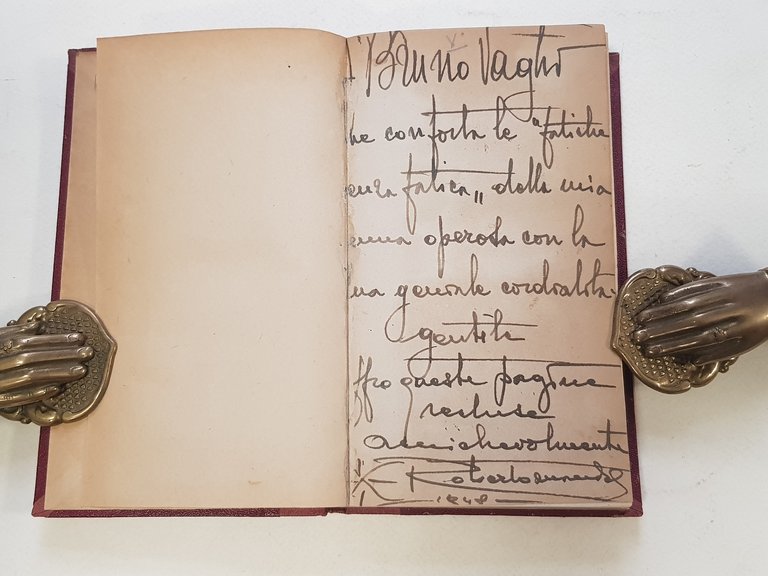 Bruno Vaghi
he conforta le "fatiche
enza fatica„ della mia
enna operosa con la
ua geniale cordialità
gentile
ffro queste pagine
recluse
amichevolmente
Roberto
1948